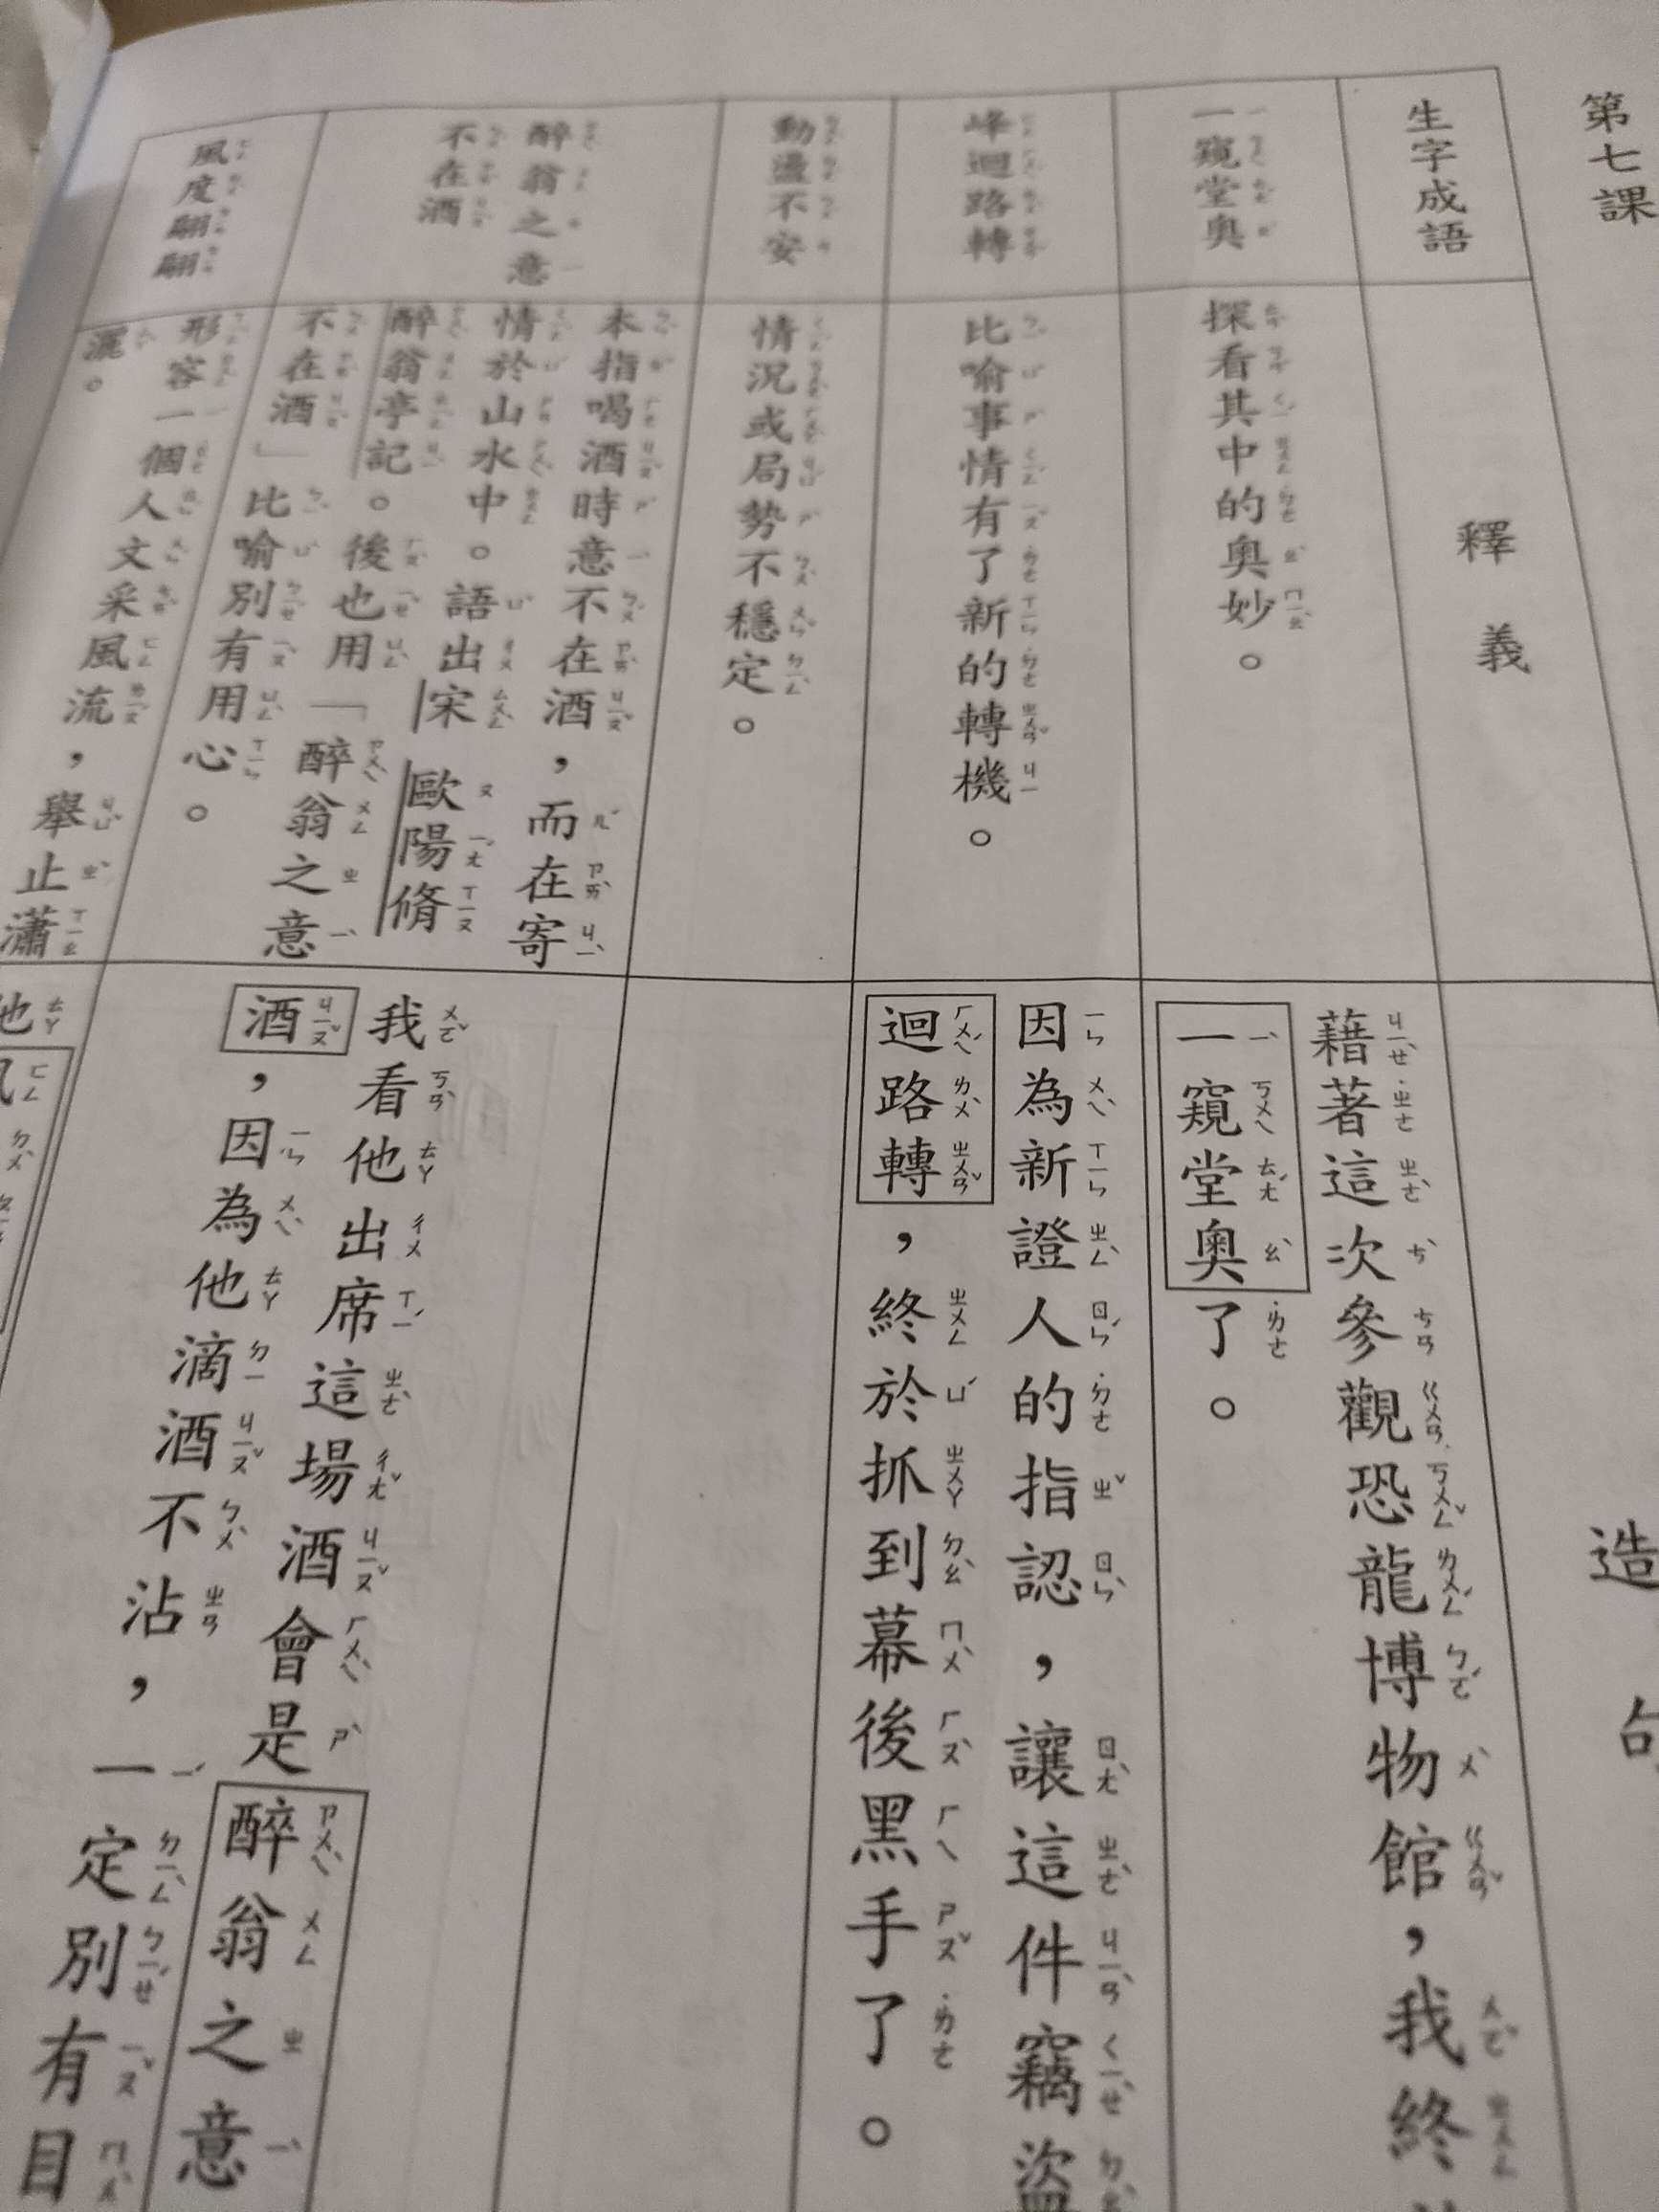 第七課
生字成語
釋義
造句
一窺堂奧
探看其中的奧妙。
藉著這次參觀恐龍博物館,我終
一窺堂奧了。
峰迴路轉
比喻事情有了新的轉機。
因為新證人的指認,讓這件竊盜
迴路轉,終於抓到幕後黑手了。
動盪不安
情況或局勢不穩定。
醉翁之意
不在酒
本指喝酒時意不在酒,而在寄
情於山水中。語出宋 歐陽脩
醉翁亭記。後也用「醉翁之意
不在酒」比喻別有用心。
我看他出席這場酒會是醉翁之意
酒,因為他滴酒不沾,一定別有目
風度翩翩
形容一個人文采風流,舉止瀟
灑。
他風